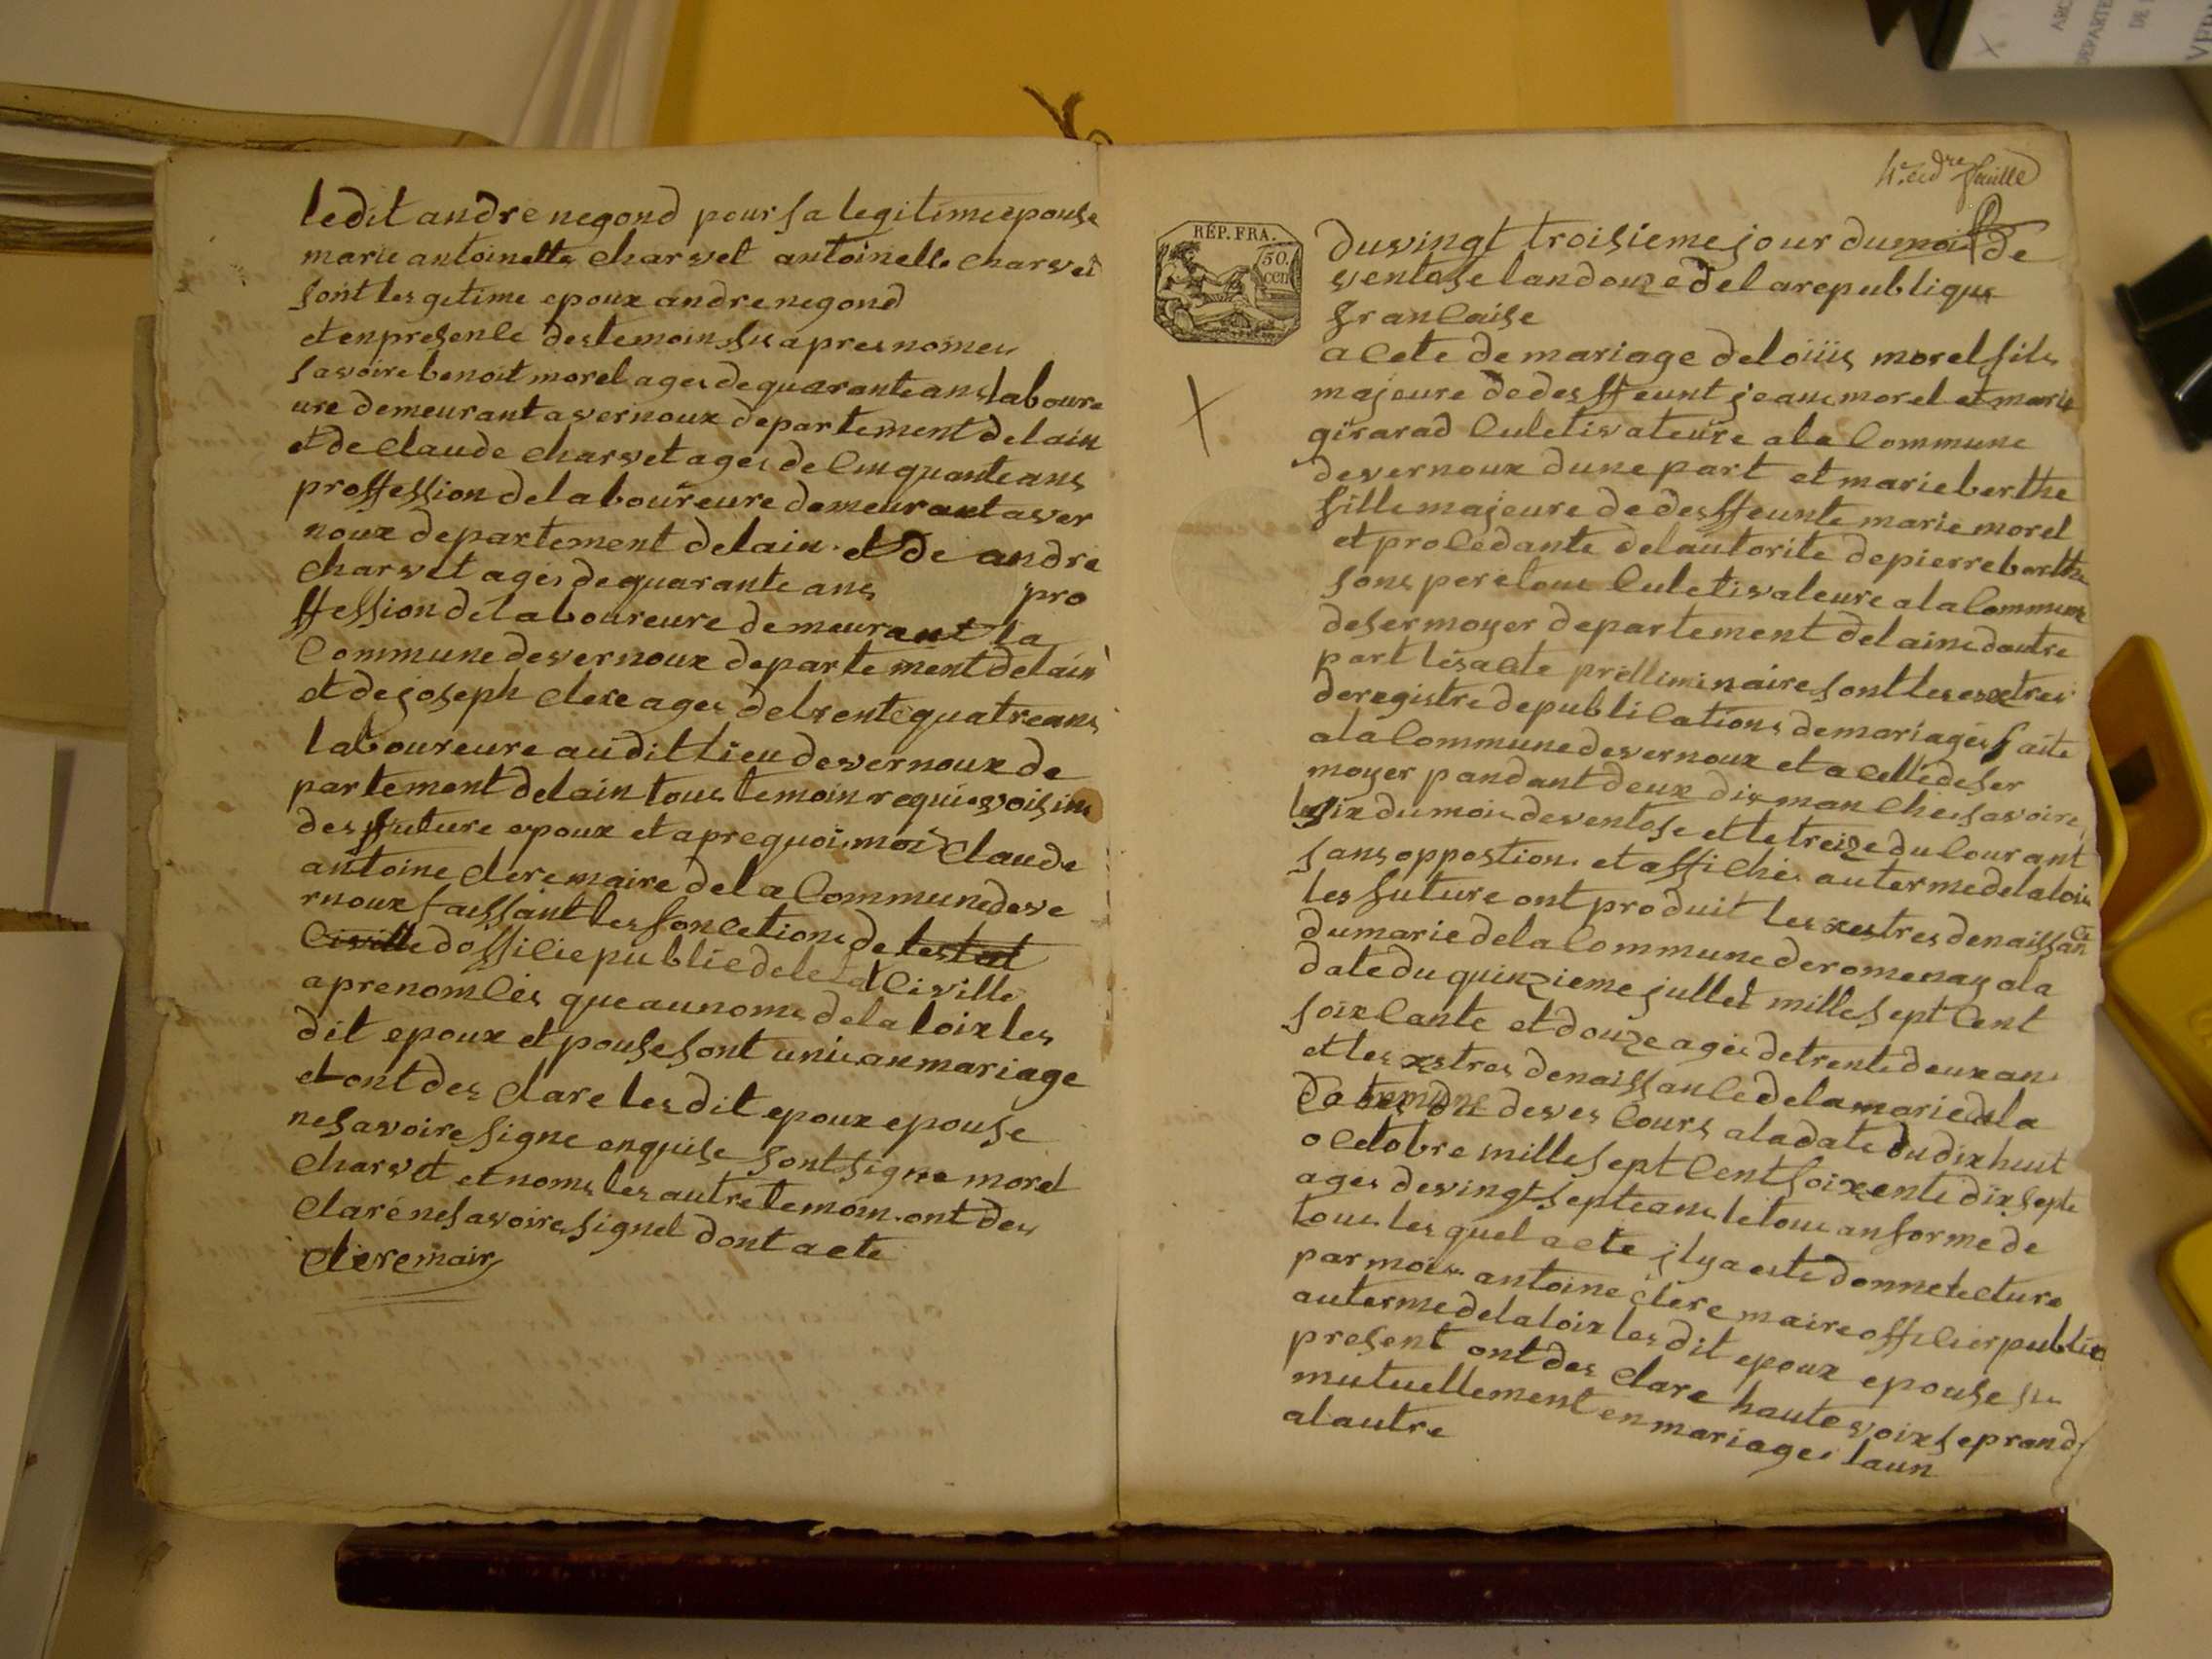 ledit andre negond pour sa legitime epouse
marie antoinette charvet antoinette charvet
sont les getime epoux andre negond
et en presence des temoin sis apres nomes
savoire benoit morel ages de quarante ans laboure
ure demeurant a vernoux departement de lain
et de claude charvet ages de cinquante ans
proffession de laboureure demeurant a ver
noux departement de lain et de andre
charvet ages de quarante ans pro
ffession de laboureure demeurant la
commune de vernoux departement de lain
et de joseph clere ages de trente quatre ans
laboureure au dit lieu de vernoux de
partement de lain tous temoin requis voisins
des future epoux et apre quoi moi claude
antoine clere maire de la commune de ve
rnoux faissant les fonctions de lestat
civille dofficie publie de letat civille
a prenomces que au noms de la loix les
dit epoux et pouse sont unis an mariage
et ont des clare les dit epoux epouse
ne savoire signe enquise sont signe morel
charvet et noms les autre temoin ont des
clare ne savoire signel dont acte
clere mair
4e et dre feuille
RÉP. FRA.
50.
cen
du vingt troisieme jour du mois de
ventose lan douze de la republique
francaise
acete de mariage de loiiis morel fils
majeure de desffeunt jeans morel et marie
girarad culetivateure a la commune
de vernoux dune part et marie berthe
fille majeure de desffeunte marie morel
et procedante de lautorite de pierre berthe
sons pere tous culetivateure a la commune
de sermoyer departement de laine dautre
part les acte prelliminaire sont les exetres
de registre de publications de mariages faite
a la commune de vernoux et a celle de ser
moyer pandant deux dix manches savoire
le six du mois de ventose et le treize du courant
sans oppostion et affiches au terme de la lois
les future ont produit les xestres de naissan
ce
du marie de la commune de romenay a la
date du quinzieme jullet mille sept cent
soixcante et douze ages de trente deux ans
et les xstres de naissance de la marie de la
commune de vescours a la date du dix huit
octobre mille sept cent soixente dix septe
ages de vingt septe ans le tous an forme de
tous les quel acte il y a este donne lecture
par mois antoine clere maire officier public
au terme de la loix les dit epoux epouse sis
present ont des clare haute voix se prand
mutuellement en mariages laun
a lautre
ARC
DEPARTE
DE L